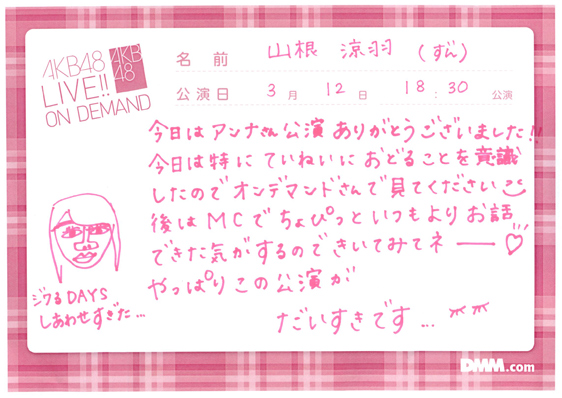 AKB48
LIVE!!
ON DEMAND
AKB
48
名前 山根 涼羽 (ずん)
公演日 3月 12日 18:30 公演
今日はアンナさん公演ありがとうございました!!
今日は特にていねいにおどることを意識
したのでオンデマンドさんで見てください
後はMCでちょぴっといつもよりお話
できた気がするのできいてみてネー♡
やっぱりこの公演が
だいすきです...
ジワるDAYS
しあわせすぎた...
DMM.com